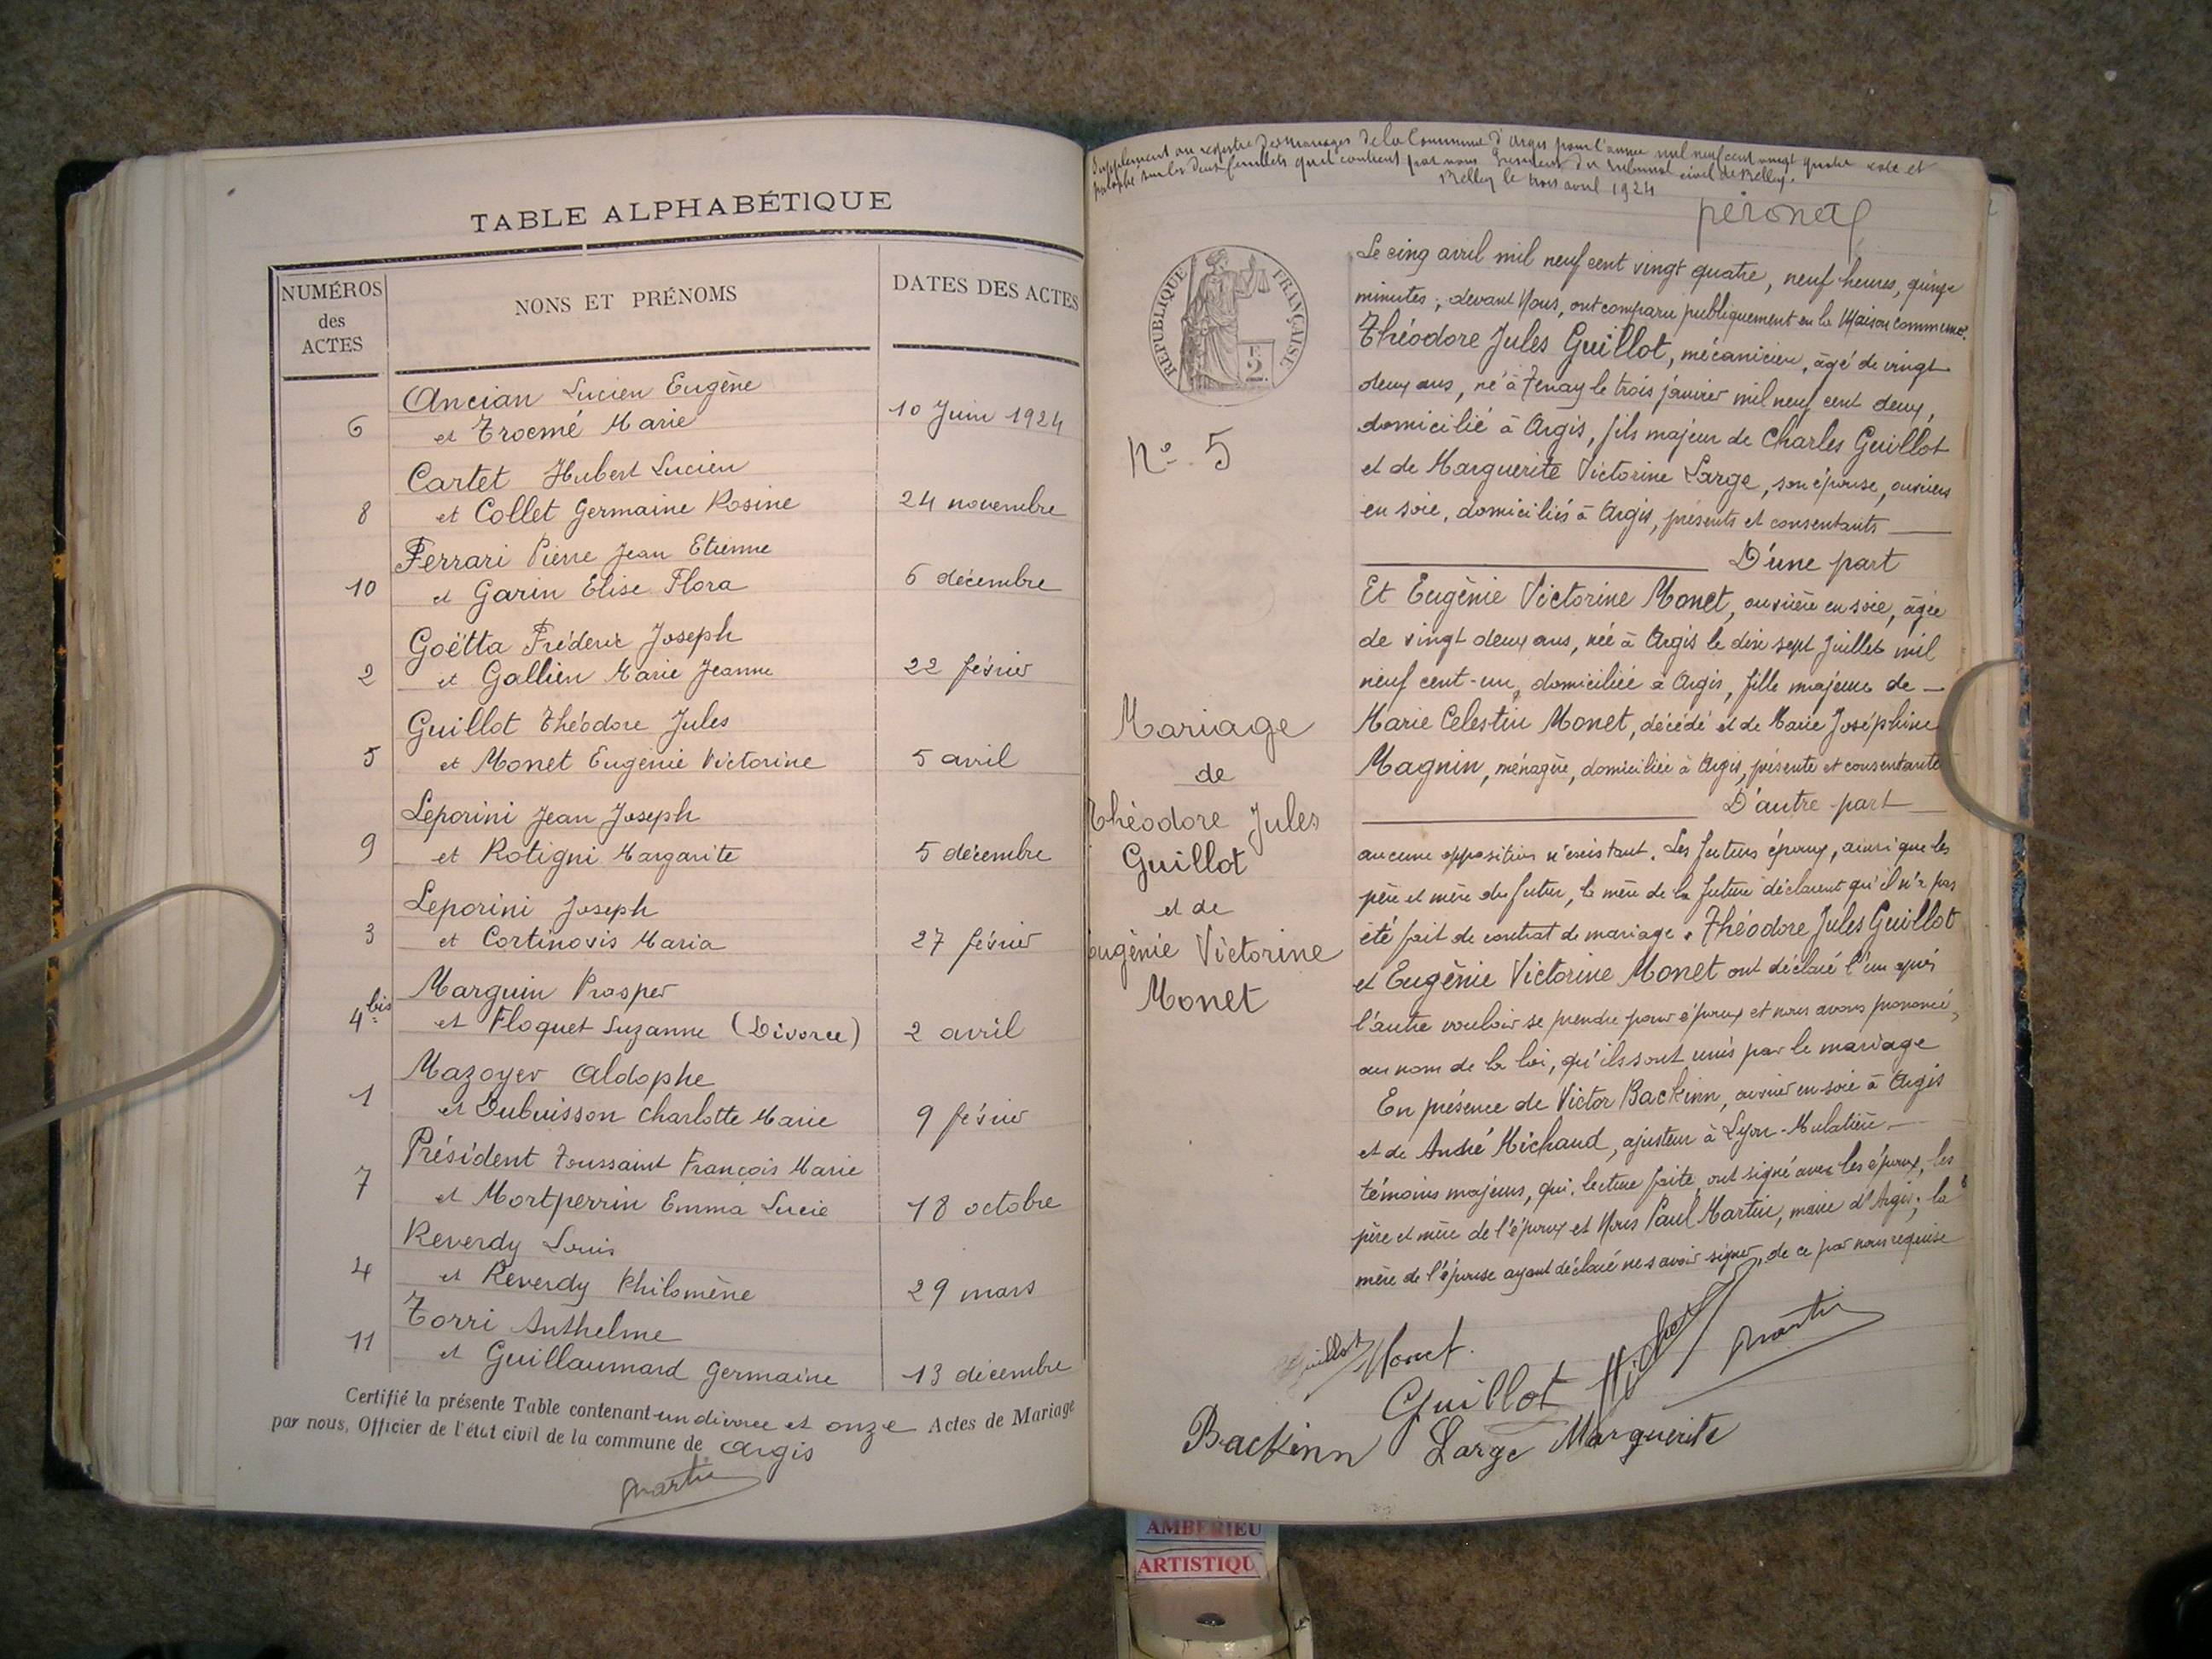 TABLE ALPHABÉTIQUE
NUMÉROS
des
ACTES
NONS ET PRÉNOMS
DATES DES ACTES
Ancian Lucien Eugène
6 et Trocmé Marie 10 Juin 1924
Cartet Hubert Lucien
8 et Collet Germaine Rosine 24 novembre
Ferrari Pierre Jean Etienne
10 et Garin Elise Flora 6 décembre
Goëtta Fréderic Joseph
2 et Gallien Marie Jeanne 22 février
Guillot Théodore Jules
5 et Monet Eugénie Victorine 5 avril
Leporini Jean Joseph
9 et Rotigni Margarite 5 décembre
Leporini Joseph
3 et Cortinovis Maria 27 février
Marguin Prosper
4 bis et Floquet Suzanne (Divorce) 2 avril
Mazoyer Aldophe
1 et Dubuisson Charlotte Marie 9 février
Président Toussaint François Marie
7 et Mortperrin Emma Lucie 18 octobre
Reverdy Louis
4 et Reverdy Philomène 29 mars
Torri Anthelme
11 et Guillaumard Germaine 13 décembre
Certifié la présente Table contenant un divorce et onze Actes de Mariage
par nous, Officier de l'état civil de la commune de Argis
Martin
Supplément au registre des mariages de la Commune d'Argis pour l'année mil neuf cent vingt quatre coté et
paraphé sur les deux feuillets qu'il contient par nous Président du Tribunal civil de Belley.
Belley le trois avril 1924
RÉPUBLIQUE FRANÇAISE
N° 5
Mariage
de
Théodore Jules
Guillot
et de
Eugénie Victorine
Monet
Le cinq avril mil neuf cent vingt quatre, neuf heures, quinze
minutes, devant Nous, ont comparu publiquement en la Maison commune:
Théodore Jules Guillot, mécanicien, âgé de vingt
deux ans, né à Tenay le trois janvier mil neuf cent deux,
domicilié à Argis, fils majeur de Charles Guillot
et de Marguerite Victorine Large, son épouse, ouvriers
en soie, domiciliés à Argis, présents et consentants
D'une part
Et Eugénie Victorine Monet, ouvrière en soie, âgée
de vingt deux ans, née à Argis le dix sept Juillet mil
neuf cent-un, domiciliée à Argis, fille majeure de
Marie Celestin Monet, décédé et de Marie Joséphine
Magnin, ménagère, domiciliée à Argis, présente et consentante
D'autre part
aucune opposition n'existant. Les futurs époux, ainsi que les
père et mère du futur, la mère de la future déclarent qu'il n'a pas
été fait de contrat de mariage. Théodore Jules Guillot
et Eugénie Victorine Monet ont déclaré l'un après
l'autre vouloir se prendre pour époux et nous avons prononcé,
au nom de la loi, qu'ils sont unis par le mariage
En présence de Victor Backinn, ouvrier en soie à Argis
et de André Michaud, ajusteur à Lyon-Mulatière
témoins majeurs, qui, lecture faite, ont signé avec les époux, les
père et mère de l'époux et Nous Paul Martin, maire d'Argis; la
mère de l'épouse ayant déclaré ne savoir signer, de ce par nous requise
Guillot Monet. Martin
Guillot
Backinn Large Marguerite
AMBERIEU
ARTISTIQU